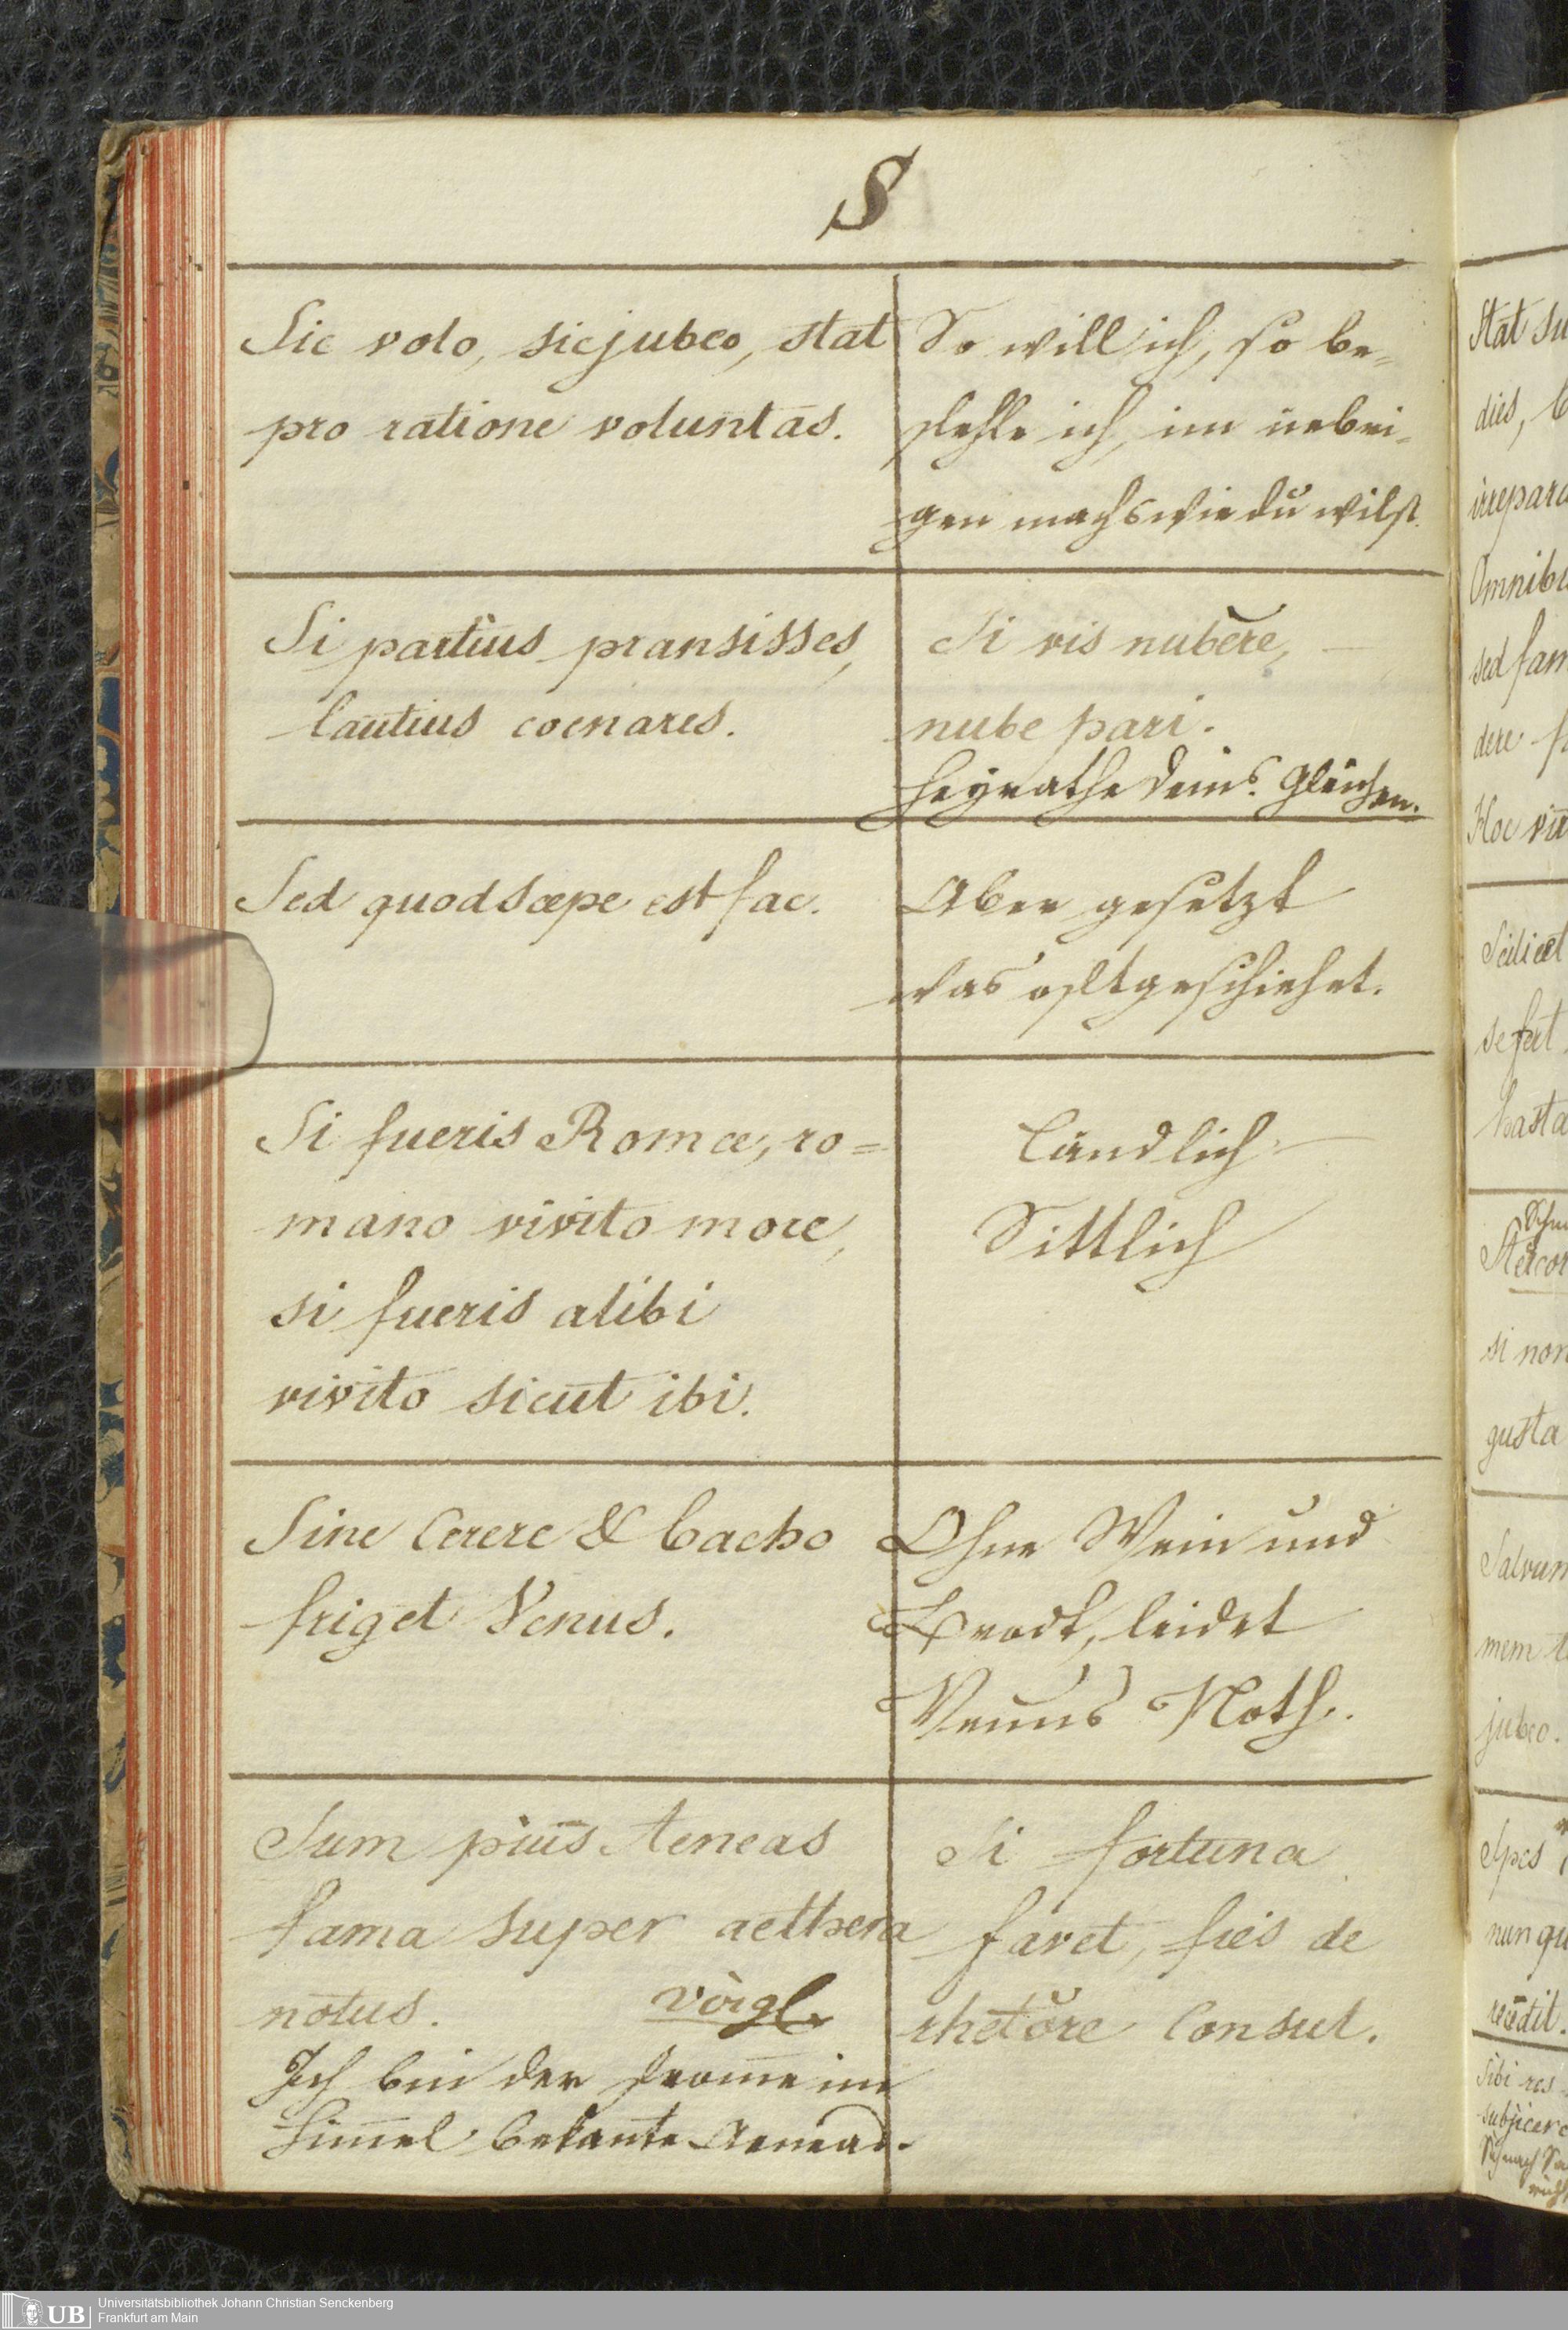 S
Sic volo, sic jubeo, stat
pro ratione voluntas.
So will ich, so be-
fehle ich, im uebri-
gen machs wie du wilst.
Si partius pransisses,
lautius coenares.
Si vis nubere,
nube pari.
Heyrathe deins Gleichen.
Sed quod sæpe est fac.
Aber gesetzt
was oft geschiehet.
Si fueris Romæ, ro=
mano vivito more,
si fueris alibi
vivito sicut ibi.
Ländlich
Sittlich
Sine Cerere & bacho
friget Venus.
Ohne Wein und
Brodt, leidet
Venus Noth.
Sum pius Aeneas
fama super aethera
notus. virgl.
Ich bin der from̅e im
Him̅el bekan̅te Aeneas.
Si fortuna
favet, fies de
rhetore Consul.
Stat su
dies, b
irrepara
Omnibu
sed fam
dere
Hoc virt
Scilicet
se fert
hasta
Stercor
si non
gusta
Salvum
mem te
jubeo.
Spes
nunqu
recedit.
Sibi res
subjicere
Universitätsbibliothek Johann Christian Senckenberg
Frankfurt am Main
UB